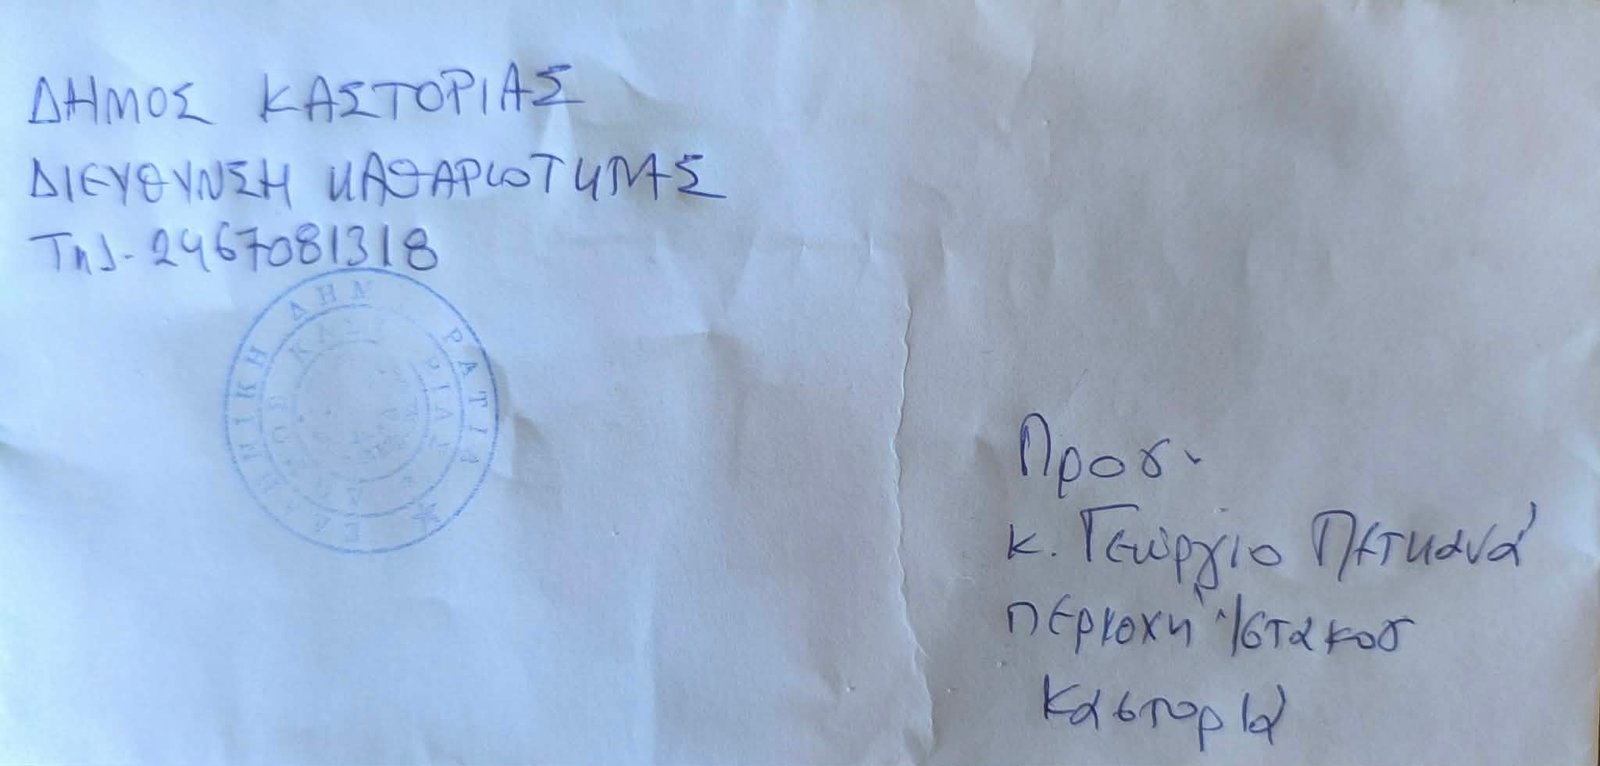 ΔΗΜΟΣ ΚΑΣΤΟΡΙΑΣ
ΔΙΕΥΘΥΝΣΗ ΚΑΘΑΡΙΟΤΗΤΑΣ
Τηλ. 2467081318
ΕΛΛΗΝΙΚΗ ΔΗΜ ΡΑΤΙΑ
ΔΗΜΟΣ ΚΑΣ ΡΙΑΣ
Προσ.
κ. Γεώργιο Πετκανά
περιοχή "Ιστακοσ
Καστοριά